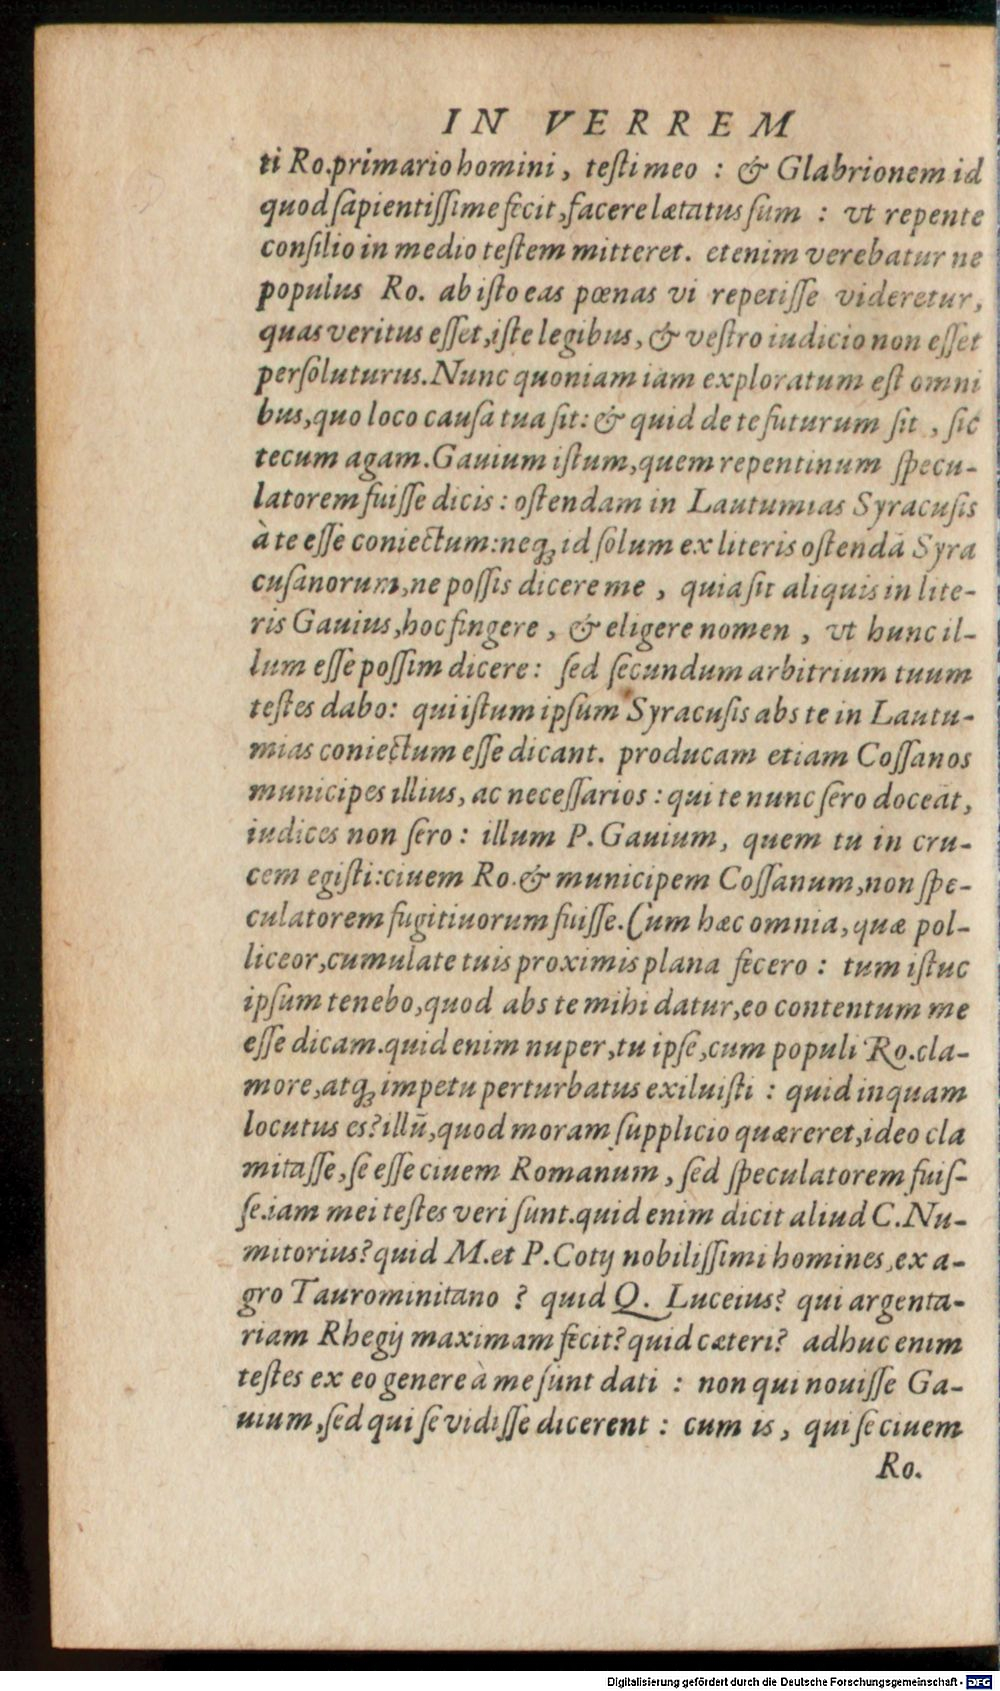 IN VERREM
ti Ro.primario homini, testi meo : & Glabrionem id
quod sapientissime fecit,facere lætatus sum : vt repente
consilio in medio testem mitteret. etenim verebatur ne
populus Ro. ab isto eas pœnas vi repetisse videretur,
quas veritus esset,iste legibus, & vestro iudicio non esset
persoluturus.Nunc quoniam iam exploratum est omni
bus,quo loco causa tua sit: & quid de te futurum sit , sic
tecum agam.Gauium istum,quem repentinum specu-
latorem fuisse dicis : ostendam in Lautumias Syracusis
à te esse coniectum:neq; id solum ex literis ostendā Syra
cusanorum,ne possis dicere me , quia sit aliquis in lite-
ris Gauius,hoc fingere , & eligere nomen , vt hunc il-
lum esse possim dicere : sed secundum arbitrium tuum
testes dabo: qui istum ipsum Syracusis abs te in Lautu-
mias coniectum esse dicant. producam etiam Cossanos
municipes illius, ac necessarios : qui te nunc sero doceāt,
iudices non sero : illum P. Gauium, quem tu in cru-
cem egisti:ciuem Ro.& municipem Cossanum,non spe-
culatorem fugitiuorum fuisse.Cum hæc omnia,quæ pol-
liceor,cumulate tuis proximis plana fecero : tum istuc
ipsum tenebo,quod abs te mihi datur,eo contentum me
esse dicam.quid enim nuper,tu ipse,cum populi Ro.cla-
more,atq; impetu perturbatus exiluisti : quid inquam
locutus es?illū,quod moram supplicio quæreret,ideo cla
mitasse,se esse ciuem Romanum, sed speculatorem fuis-
se.iam mei testes veri sunt.quid enim dicit aliud C.Nu-
mitorius?quid M.et P.Cotij nobilissimi homines,ex a-
gro Taurominitano ? quid Q. Luceius? qui argenta-
riam Rhegij maximam fecit?quid cæteri? adhuc enim
testes ex eo genere à me sunt dati : non qui nouisse Ga-
uium,sed qui se vidisse dicerent : cum is, qui se ciuem
Ro.
Digitalisierung gefördert durch die Deutsche Forschungsgemeinschaft - DFG